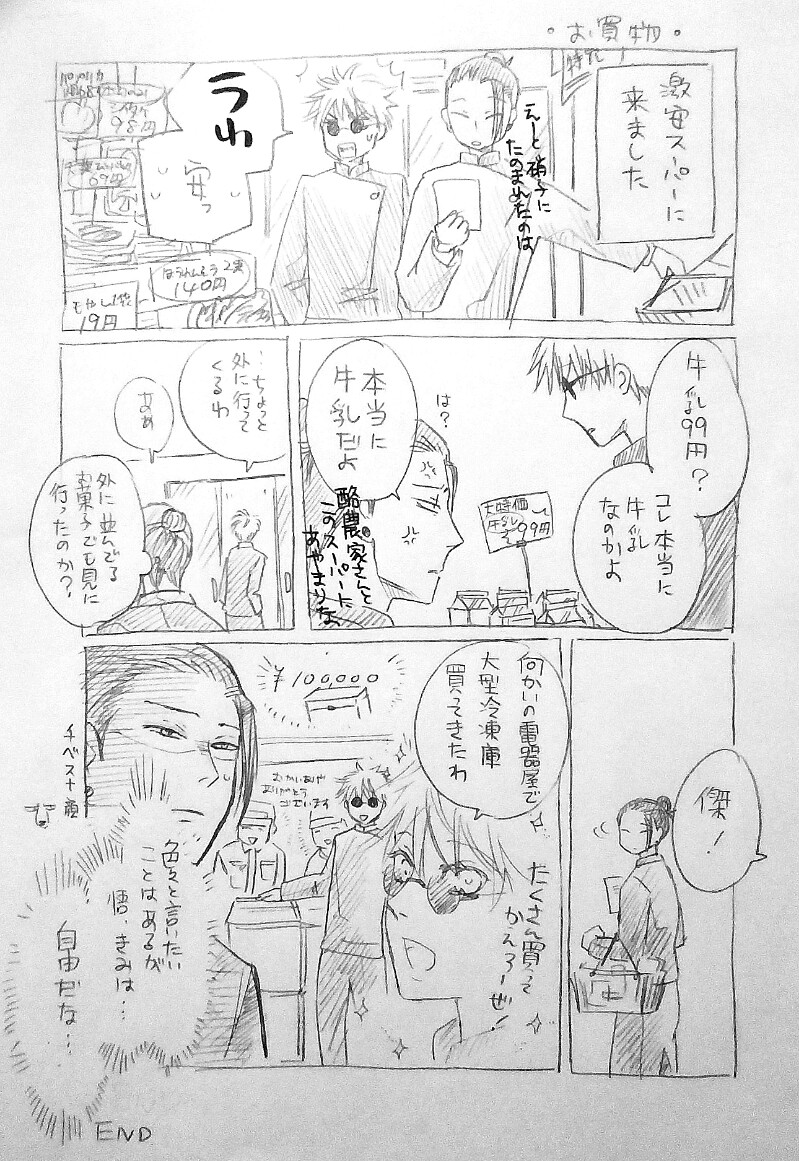 ・お買物・
特売!
激安スーパーに
来ました
えーと硝子に
たのまれたのは
うわ
安っ
98円
ほうれんそう2束
140円
もやし1袋
19円
牛乳99円?
コレ本当に
牛乳
なのかよ
大特価
牛乳
99円
は?
本当に
牛乳だよ
酪農家さんと
このスーパーに
あやまりな
…ちょっと
外に行って
くるわ
ああ
外に並んでる
お菓子でも見に
行ったのか?
傑!
向かいの電器屋で
大型冷凍庫
買ってきたわ
たくさん買って
かえろーぜ!
¥100000
おかいあげ
ありがとう
ございます
チベスナ顔
色々と言いたい
ことはあるが
悟、きみは…
自由だな…
END